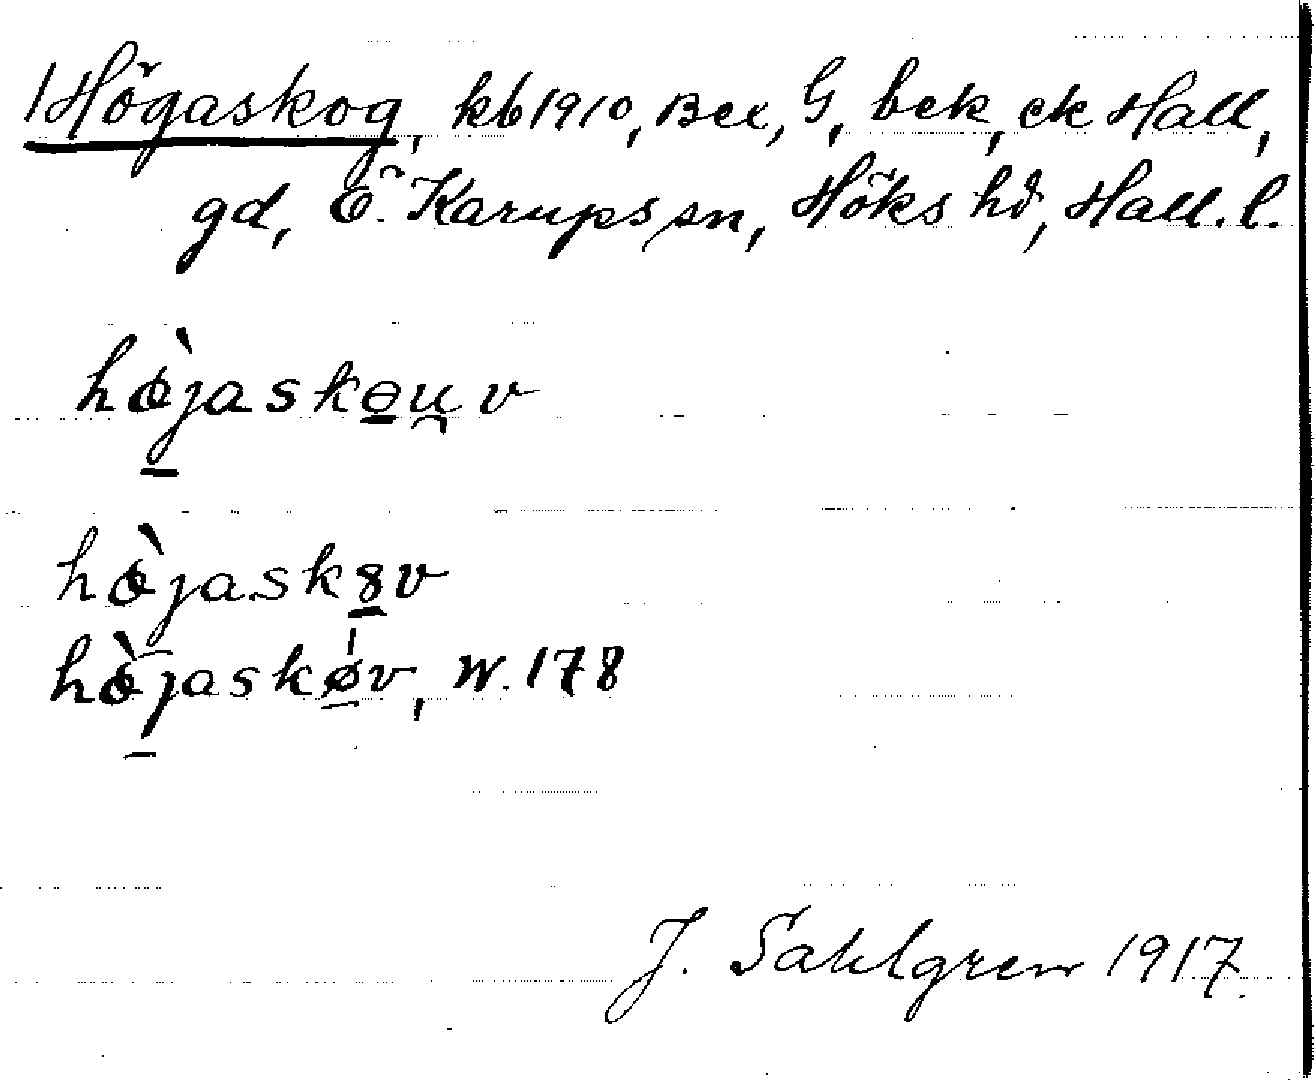 Högaskog, kb 1910, Bex, G, bek, ek Hall,
gd, Ö. Karups sn, Höks hd, Hall. l.
hòjaskɵu̯v
hòjask8v
hòjaskøv, W. 178
J. Sahlgren 1917.